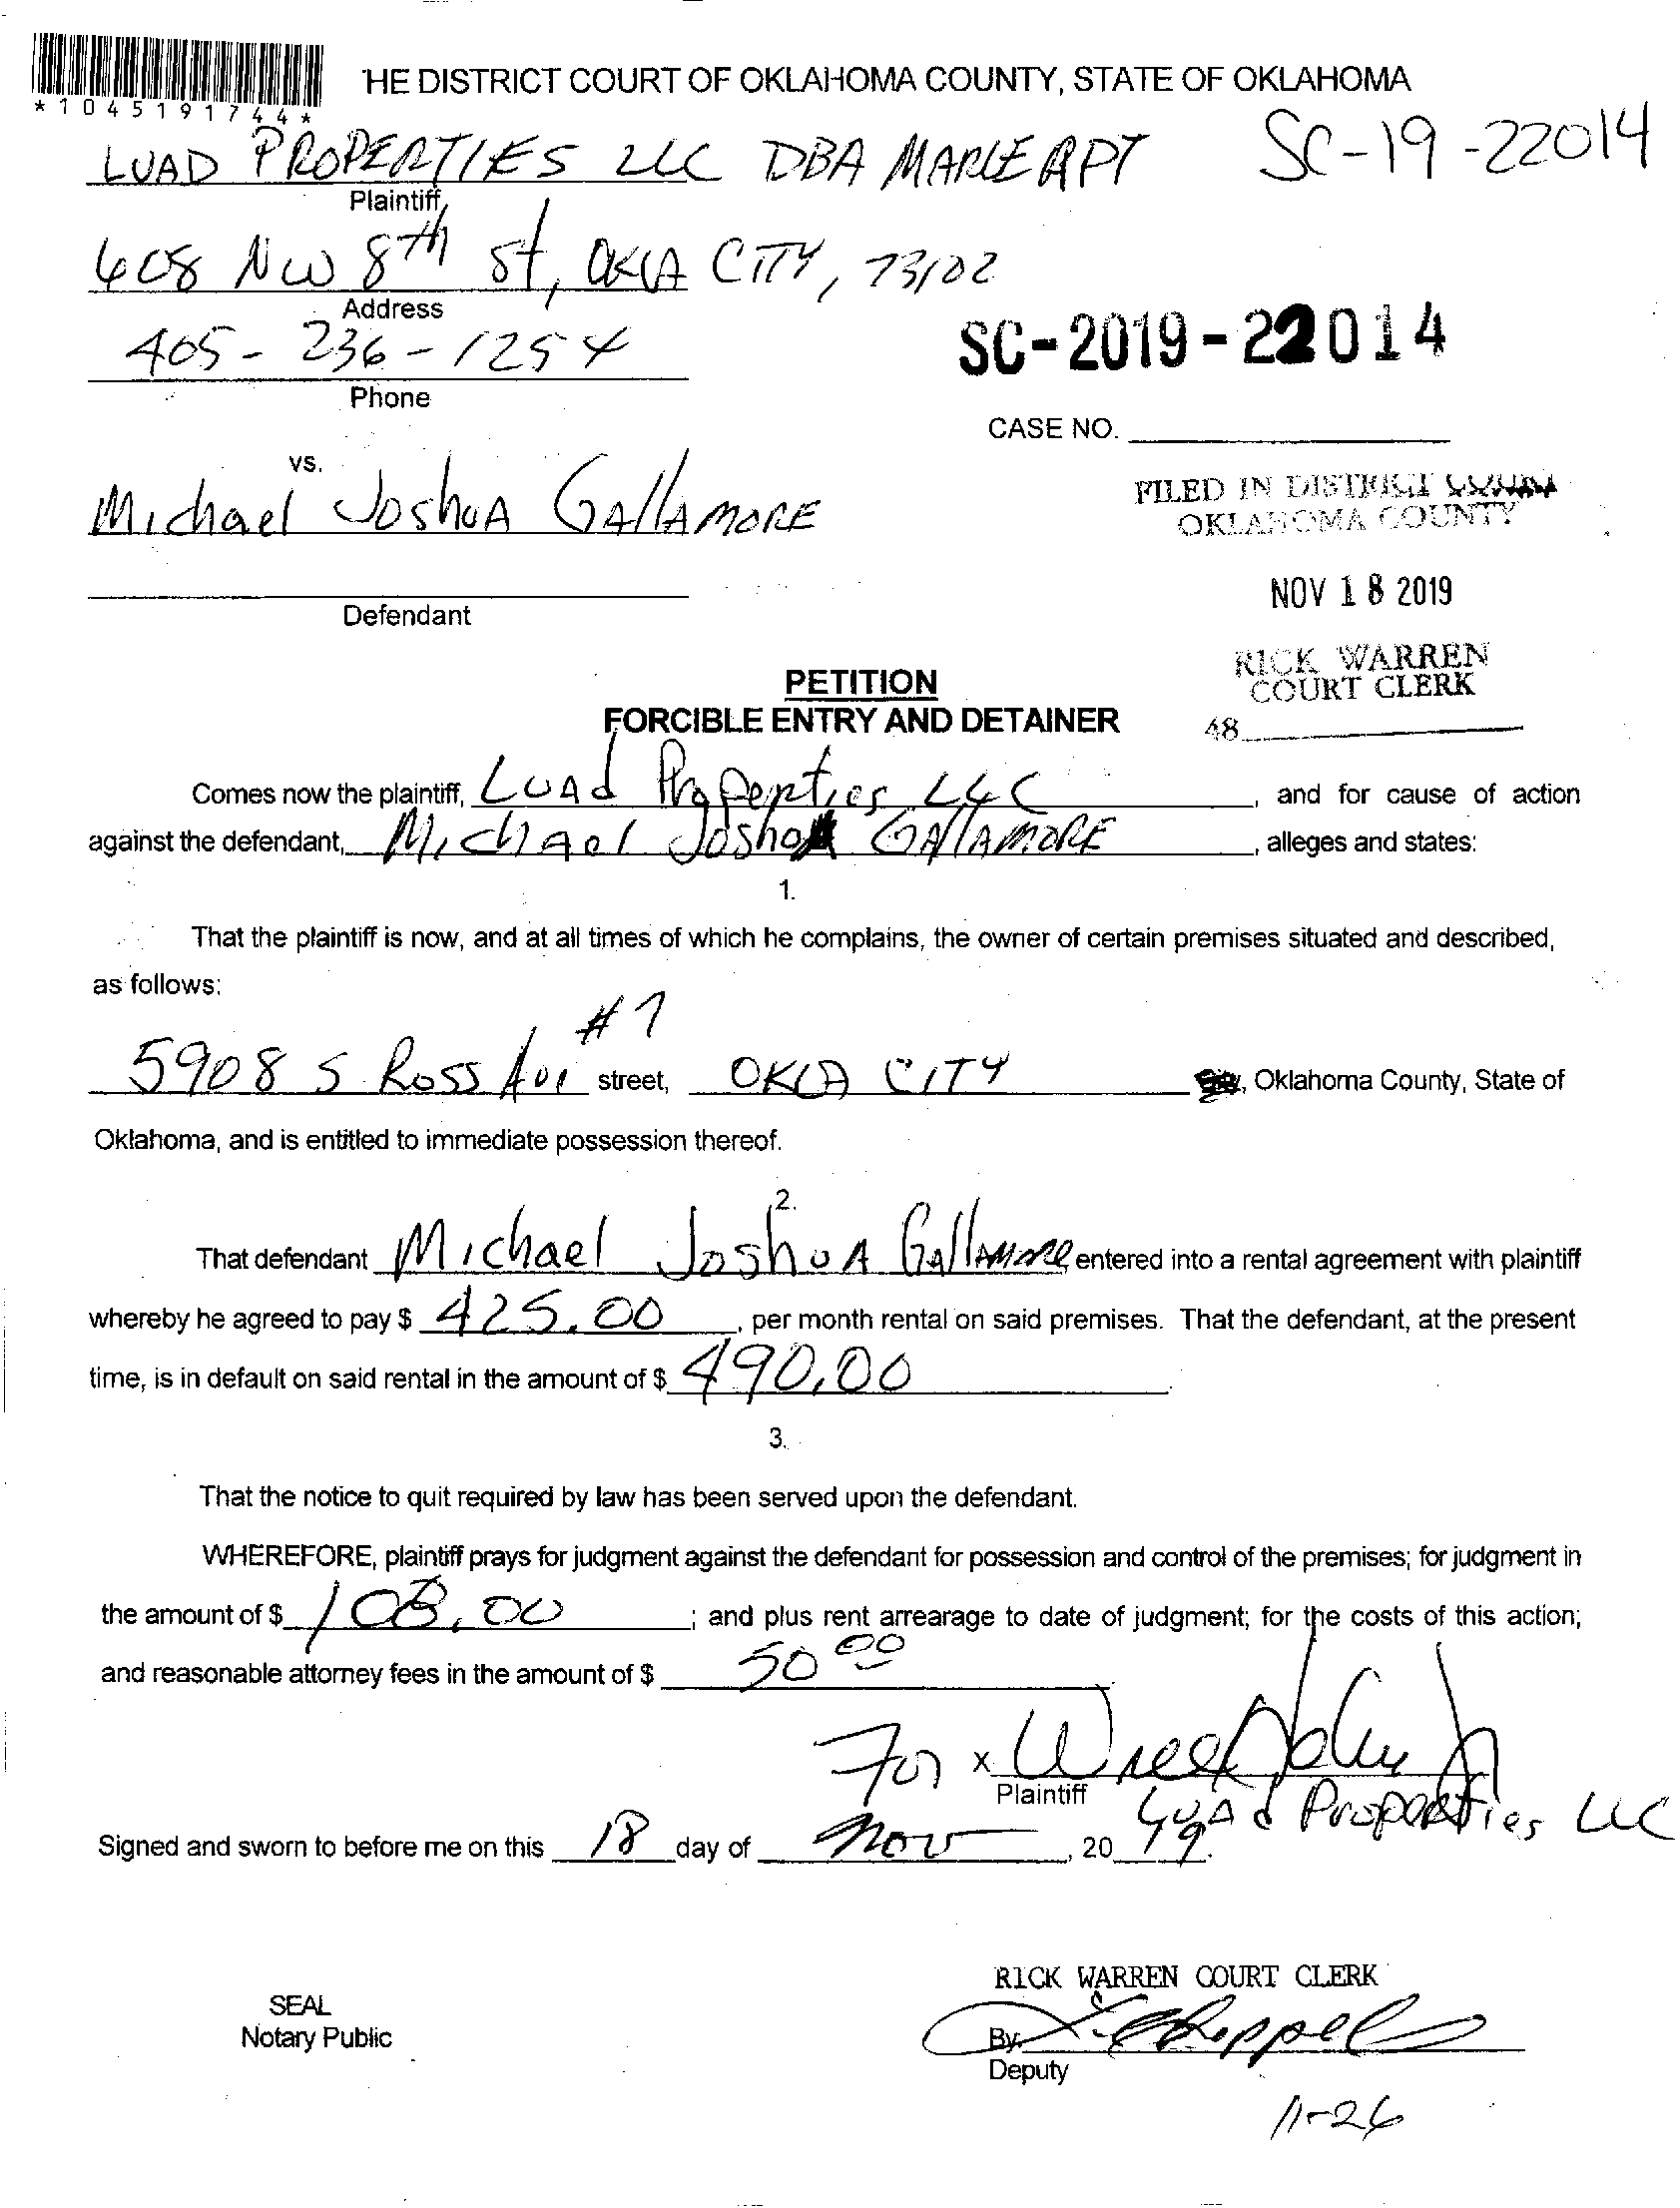 *1045191744*
THE DISTRICT COURT OF OKLAHOMA COUNTY, STATE OF OKLAHOMA
LUAD PROPERTIES LLC DBA MARLE APT SC-19-22014
Plaintiff,
408 NW 8TH St, OKLA CITY, 73102
Address
405-236-1254
Phone
SC-2019-22014
CASE NO.
vs.
Michael Joshua GALLAMORE
Defendant
FILED IN DISTRICT COURT
OKLAHOMA COUNTY
NOV 18 2019
RICK WARREN
COURT CLERK
48
PETITION
FORCIBLE ENTRY AND DETAINER
Comes now the plaintiff, LUAD Properties LLC, and for cause of action
against the defendant, Michael Joshua GALLAMORE, alleges and states:
1.
That the plaintiff is now, and at all times of which he complains, the owner of certain premises situated and described,
as follows:
5908 S Ross Ave #7 street, OKLA CITY, Oklahoma County, State of
Oklahoma, and is entitled to immediate possession thereof.
2.
That defendant Michael Joshua Gallamore entered into a rental agreement with plaintiff
whereby he agreed to pay $ 425.00, per month rental on said premises. That the defendant, at the present
time, is in default on said rental in the amount of $ 490.00.
3.
That the notice to quit required by law has been served upon the defendant.
WHEREFORE, plaintiff prays for judgment against the defendant for possession and control of the premises; for judgment in
the amount of $ 108.00; and plus rent arrearage to date of judgment; for the costs of this action;
and reasonable attorney fees in the amount of $ 50 00
For x
Plaintiff
LUAD Properties LLC
Signed and sworn to before me on this 18 day of Nov, 20 19.
RICK WARREN COURT CLERK
SEAL
Notary Public
By:
Deputy
11-26